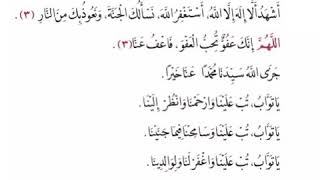 أَشْهَدُ أَلَّا إِلَهَ إِلَّا اللهُ، أَسْتَغْفِرُ اللهَ، نَسْأَلُكَ الْجَنَّةَ، وَنَعُوذُبِكَ مِنَ النَّارِ (٣).
اللَّهُمَّ إِنَّكَ عَفُوٌّ تُحِبُّ الْعَفْوَ، فَاعْفُ عَنَّا (٣).
جَزَى اللهُ سَيِّدَنَا مُحَمَّدًا عَنَّا خَيْرًا.
يَا تَوَّابُ، تُبْ عَلَيْنَا وَارْحَمْنَا وَانْظُرْ إِلَيْنَا.
يَا تَوَّابُ، تُبْ عَلَيْنَا وَسَامِحْنَا فِيمَا جَنَيْنَا.
يَا تَوَّابُ، تُبْ عَلَيْنَا وَاغْفِرْ لَنَا وَلِوَالِدِينَا.